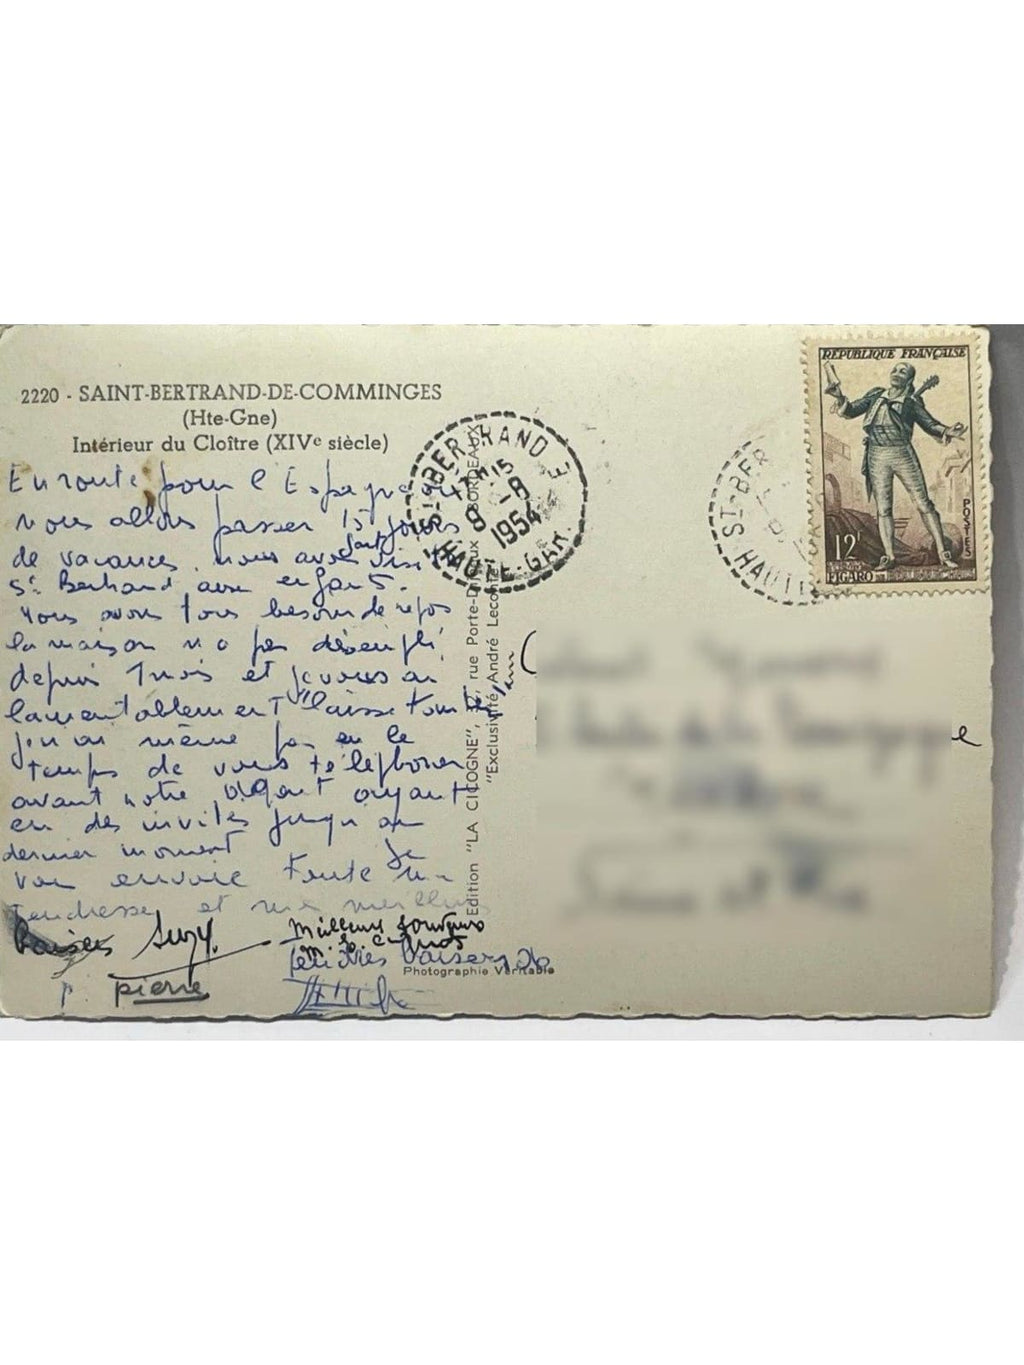 2220 - SAINT-BERTRAND-DE-COMMINGES
(Hte-Gne)
Intérieur du Cloître (XIVe siècle)
En route pour l'Espagne où
nous allons passer 15 jours
de vacances, nous avons
St Bertrand avec enfants.
Nous avons tous besoin de repos
la maison n'a pas désempli
depuis 1 mois et je vous ai
lamentablement "laissé tomber"
je n'ai même pas eu le
temps de vous téléphoner
avant notre départ ayant
eu des invités jusqu'au
dernier moment Je
vous envoie toute ma
tendresse et mes meilleurs
baisers Suzy.
Meilleurs souvenirs
baisers de
pierre
Photographie Véritable
Edition "LA CICOGNE", rue Porte-Dijeaux BORDEAUX
"Exclusivité André Leconte"
ST-BERTRAND DE
15
8-8
1954
HAUTE-GAR.
ST-BER
HAUTE
RÉPUBLIQUE FRANÇAISE
POSTES
12F
FIGARO